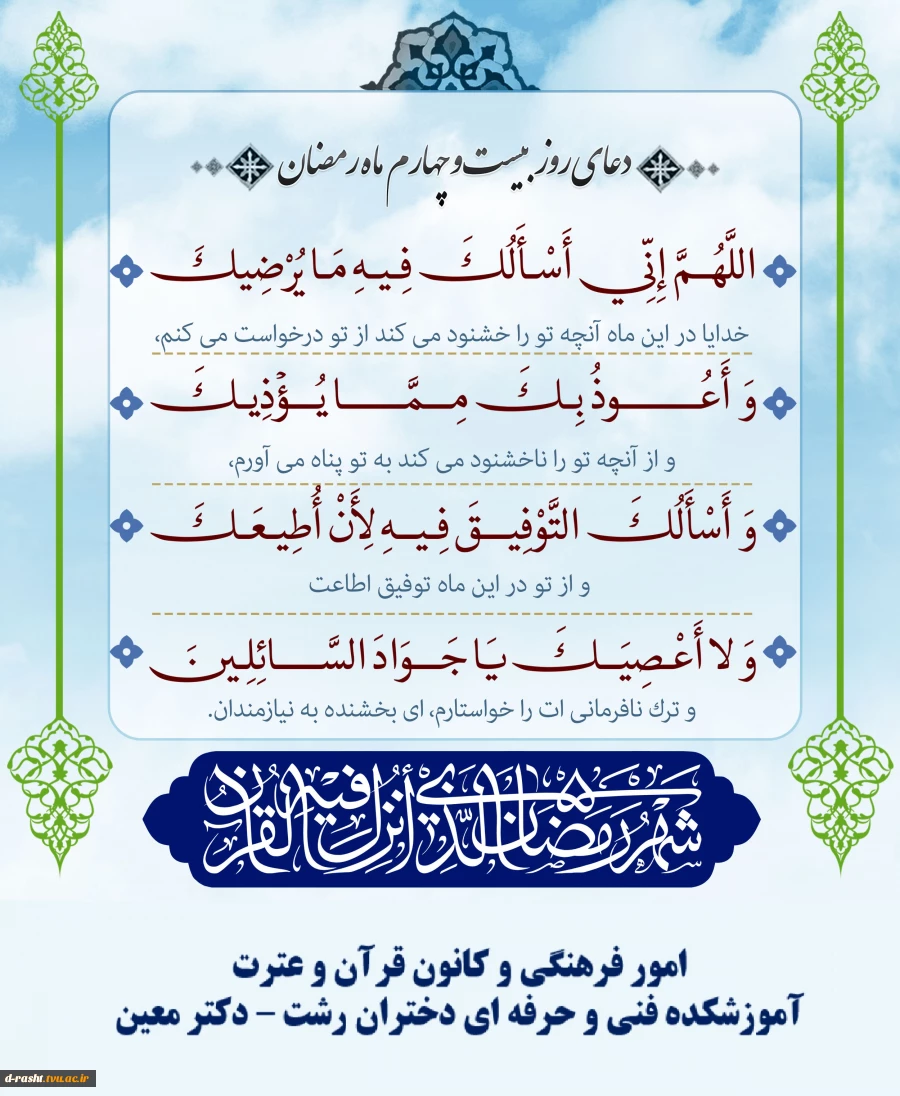 دعای روز بیست و چهارم ماه رمضان
اللَّهُمَّ إِنِّي أَسْأَلُكَ فِيهِ مَا يُرْضِيكَ
خدایا در این ماه آنچه تو را خشنود می کند از تو درخواست می کنم،
وَ أَعُوذُ بِكَ مِمَّا يُؤْذِيكَ
و از آنچه تو را ناخشنود می کند به تو پناه می آورم،
وَ أَسْأَلُكَ التَّوْفِيقَ فِيهِ لِأَنْ أُطِيعَكَ
و از تو در این ماه توفیق اطاعت
وَ لا أَعْصِيَكَ يَا جَوَادَ السَّائِلِينَ
و ترك نافرمانی ات را خواستارم، ای بخشنده به نیازمندان.
شهر رمضان الذي أنزل فيه القرآن
امور فرهنگی و کانون قرآن و عترت
آموزشکده فنی و حرفه ای دختران رشت – دکتر معین
d-rasht.tvu.ac.ir